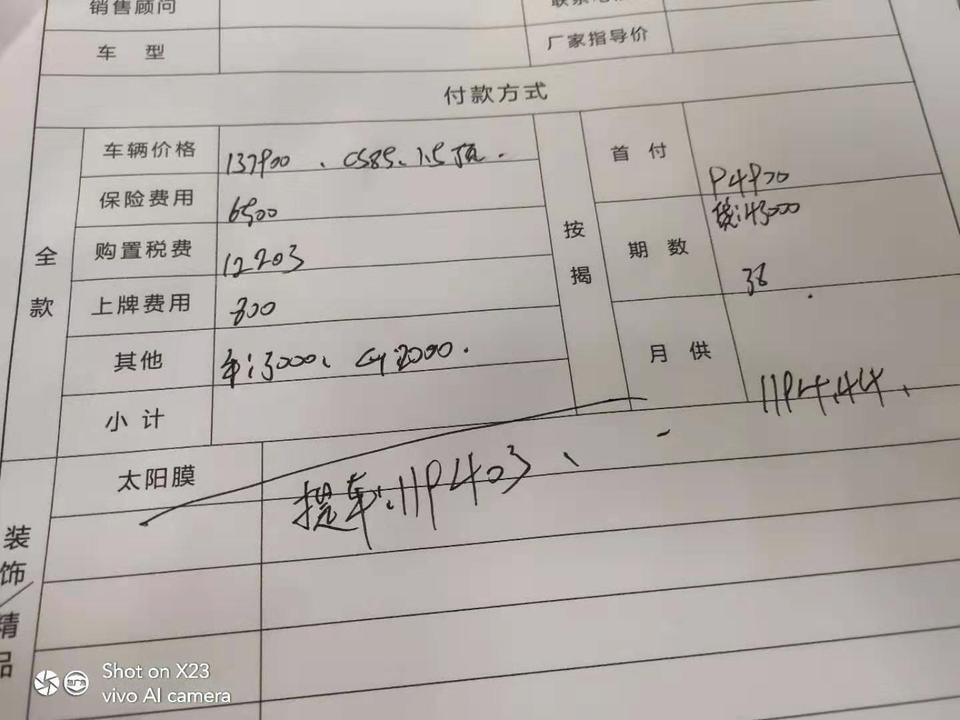 销售顾问
车 型
厂家指导价
付款方式
全款
车辆价格 137900、CS85、1.5顶.
保险费用 6500
购置税费 12203
上牌费用 800
其他 :3000、 :2000.
小计
按揭
首付 94900
贷:43000
期数 36
月供 1194.44、
装饰/精品
太阳膜
提车:119403、
Shot on X23
vivo AI camera